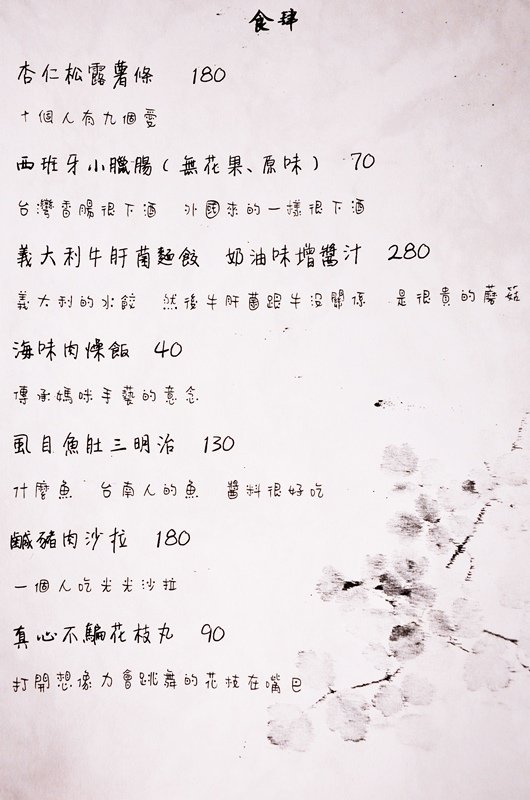 食肆
杏仁松露薯條 180
十個人有九個愛
西班牙小臘腸(無花果、原味) 70
台灣香腸很下酒 外國來的一樣很下酒
義大利牛肝菌麵餃 奶油味增醬汁 280
義大利的水餃 然後牛肝菌跟牛沒關係 是很貴的蘑菇
海味肉燥飯 40
傳承媽咪手藝的意念
虱目魚肚三明治 130
什麼魚 台南人的魚 醬料很好吃
鹹豬肉沙拉 180
一個人吃光光沙拉
真心不騙花枝丸 90
打開想像力會跳舞的花枝在嘴巴